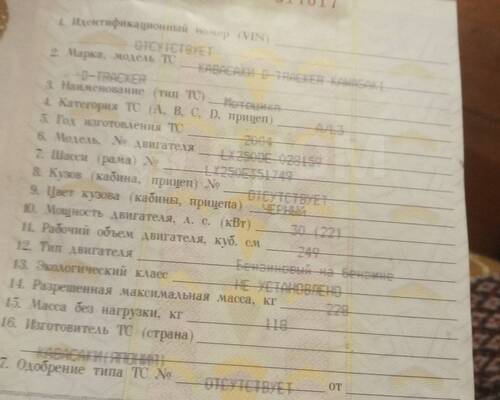 1. Идентификационный номер (VIN)
ОТСУТСТВУЕТ
2. Марка, модель ТС КАВАСАКИ D-TRACKER KAWASAKI
D-TRACKER
3. Наименование (тип ТС) Мотоцикл
4. Категория ТС (A, B, C, D, прицеп) A/L3
5. Год изготовления ТС 2004
6. Модель, № двигателя LX250DE 028159
7. Шасси (рама) № LX250ET51749
8. Кузов (кабина, прицеп) № ОТСУТСТВУЕТ
9. Цвет кузова (кабины, прицепа) ЧЕРНЫЙ
10. Мощность двигателя, л. с. (кВт) 30 (22)
11. Рабочий объем двигателя, куб. см 249
12. Тип двигателя Бензиновый на бензине
13. Экологический класс НЕ УСТАНОВЛЕНО
14. Разрешенная максимальная масса, кг 228
15. Масса без нагрузки, кг 118
16. Изготовитель ТС (страна)
КАВАСАКИ(ЯПОНИЯ)
7. Одобрение типа ТС № ОТСУТСТВУЕТ от